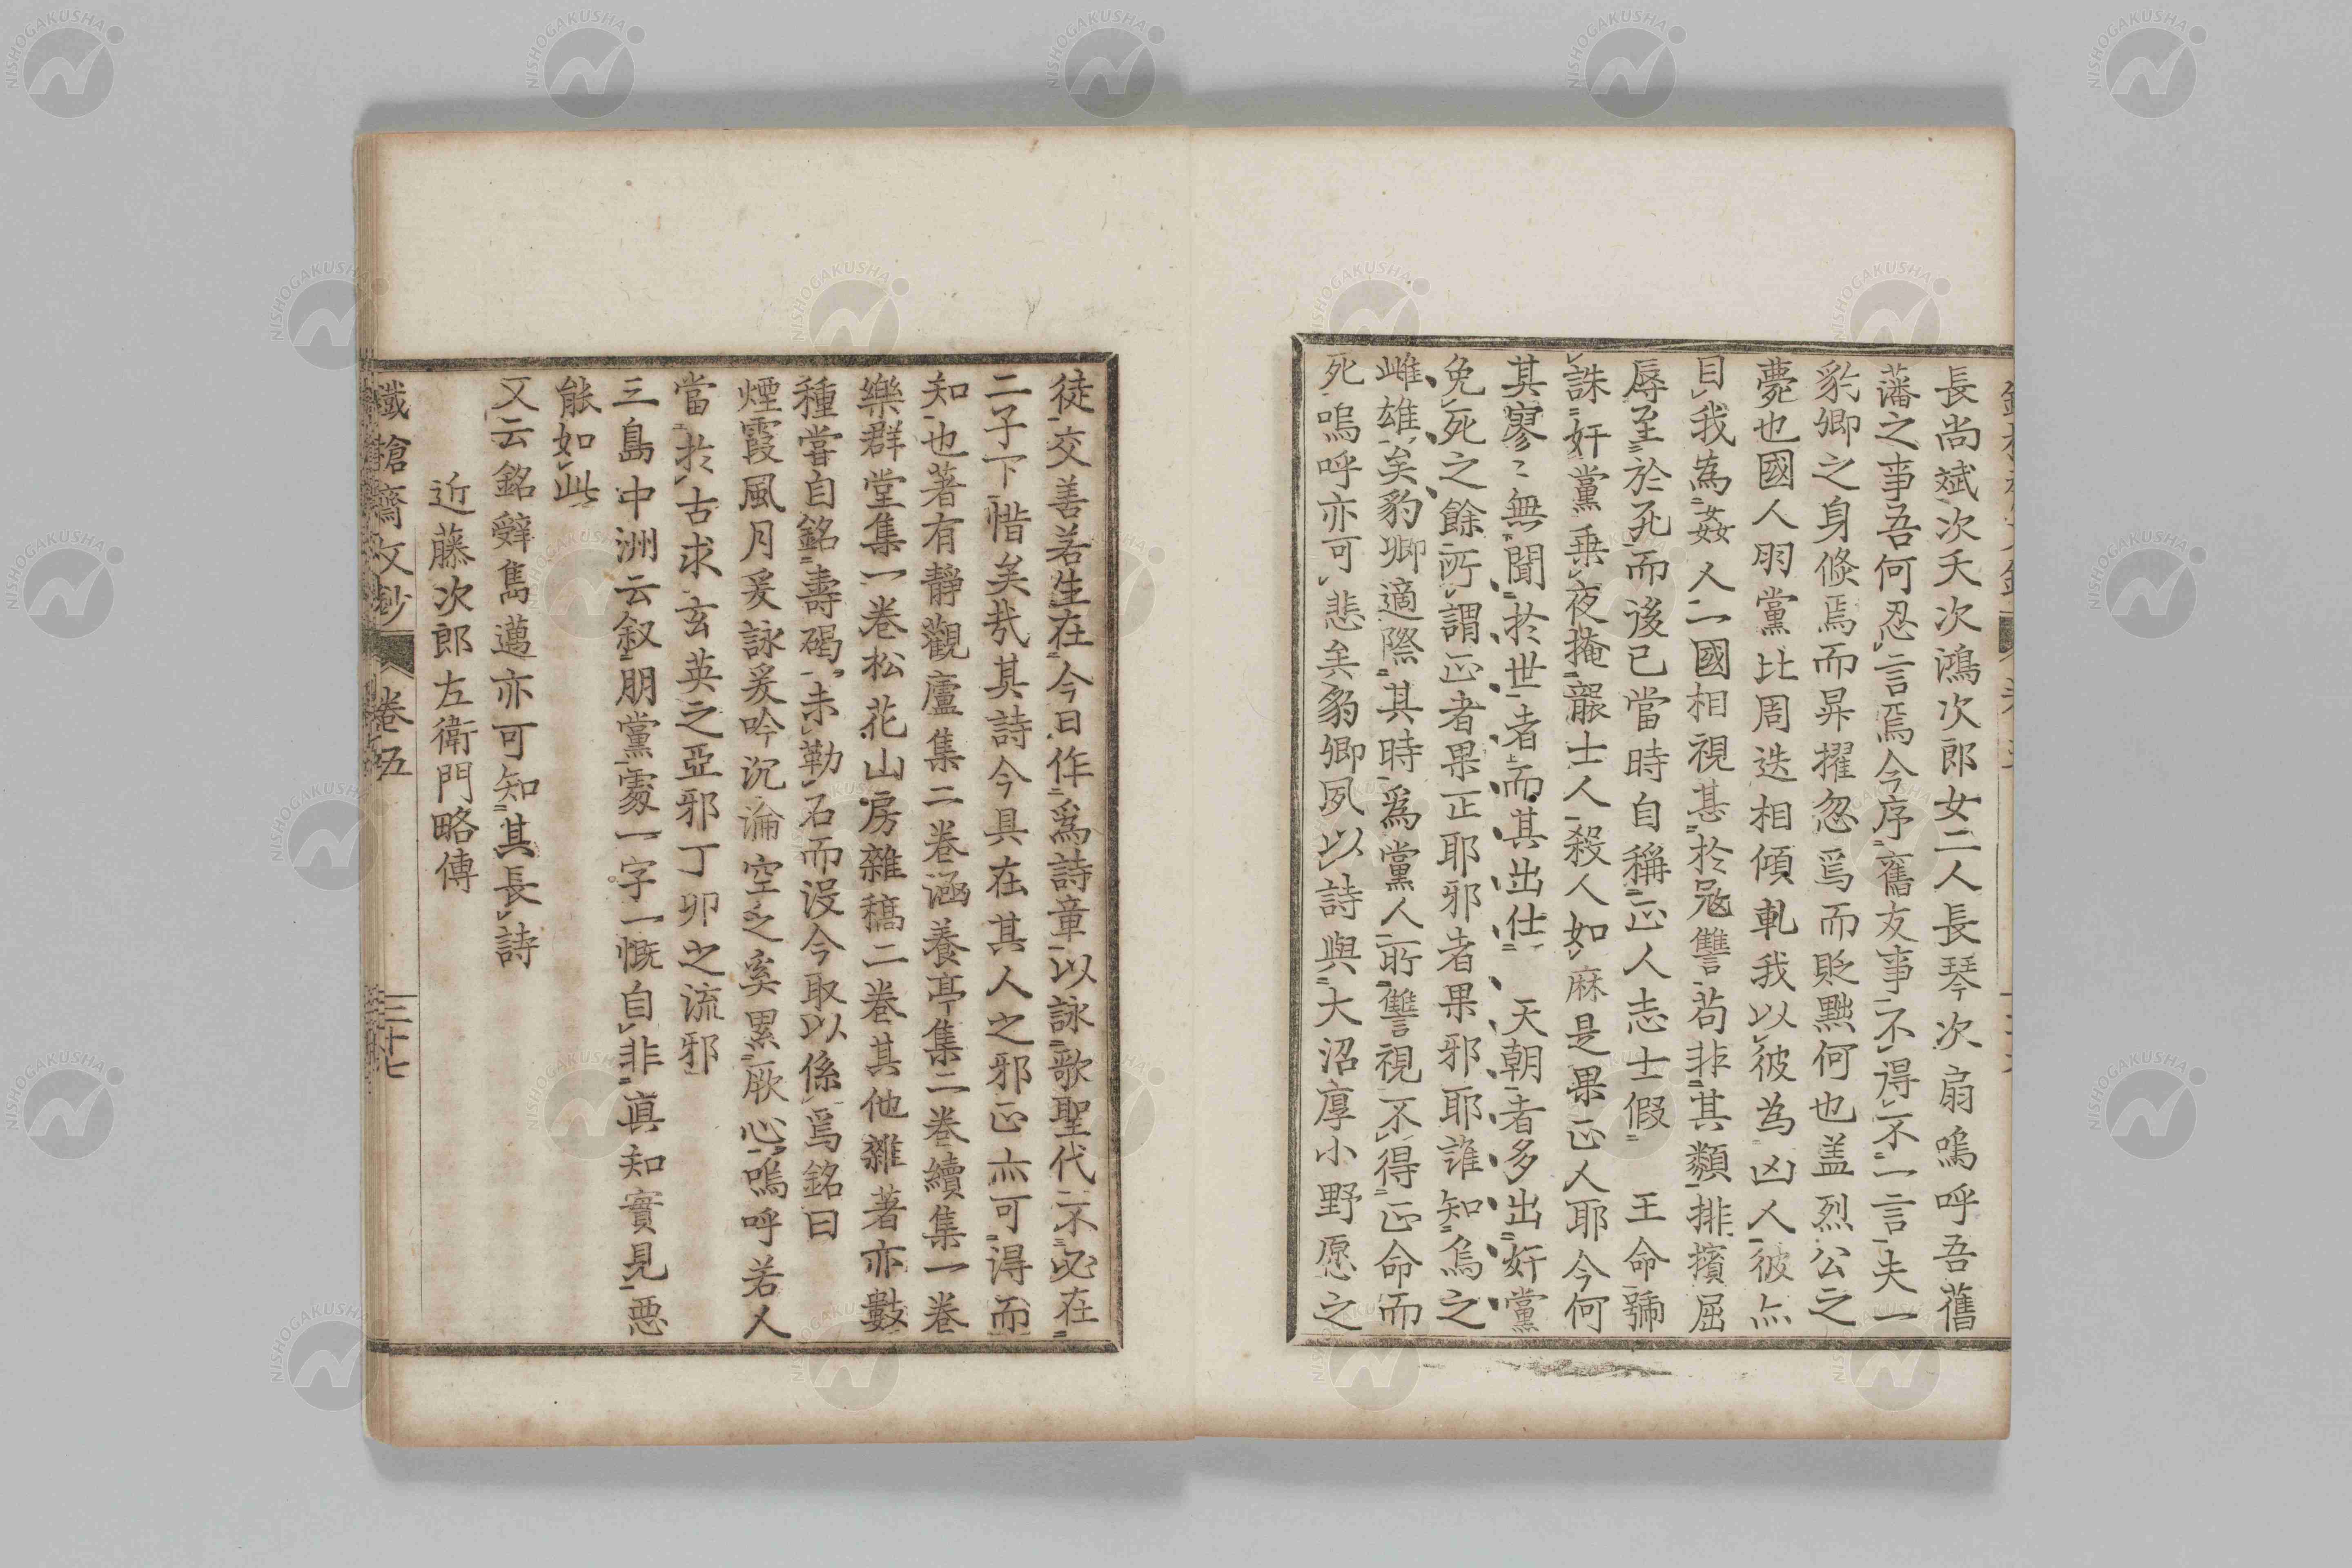 長尚斌次夭次鴻次郎女二人長琴次扇嗚呼吾舊
藩之事吾何忍言焉今序舊友事不得不一言夫一
豹卿之身倏焉而昇擢忽焉而貶黜何也盖烈公之
薨也國人朋黨比周迭相傾軋我以彼為凶人彼亦
目我為姦人一國相視甚於冦讐苟非其類排擯屈
辱至於死而後已當時自稱正人志士假 王命號
誅奸黨乗夜掩襲士人殺人如麻是果正人耶今何
其寥〻無聞於世者而其出仕 天朝者多出奸黨
免死之餘所謂正者果正耶邪者果邪耶誰知烏之
雌雄矣豹卿適際其時爲黨人所讐視不得正命而
死嗚呼亦可悲矣豹卿夙以詩與大沼厚小野愿之
徒交善若生在今日作爲詩章以詠歌聖代不必在
二子下惜矣㦲其詩今具在其人之邪正亦可得而
知也著有靜觀廬集二巻涵養亭集二巻續集一巻
樂群堂集一巻松花山房雜稿二巻其他雜著亦數
種嘗自銘壽碣未勒石而没今取以係焉銘曰
煙霞風月爰詠爰吟沉淪空乏奚累厥心嗚呼若人
當於古求玄英之亞邪丁卯之流邪
三島中洲云叙朋黨處一字一慨自非眞知實見惡
能如此
又云銘辭雋邁亦可知其長詩
近藤次郎左衛門略傳
巻五
三十七
NISHOGAKUSHA